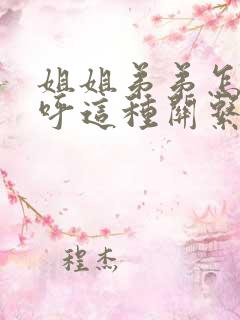 姐姐弟弟怎
呼這種關繫
程杰